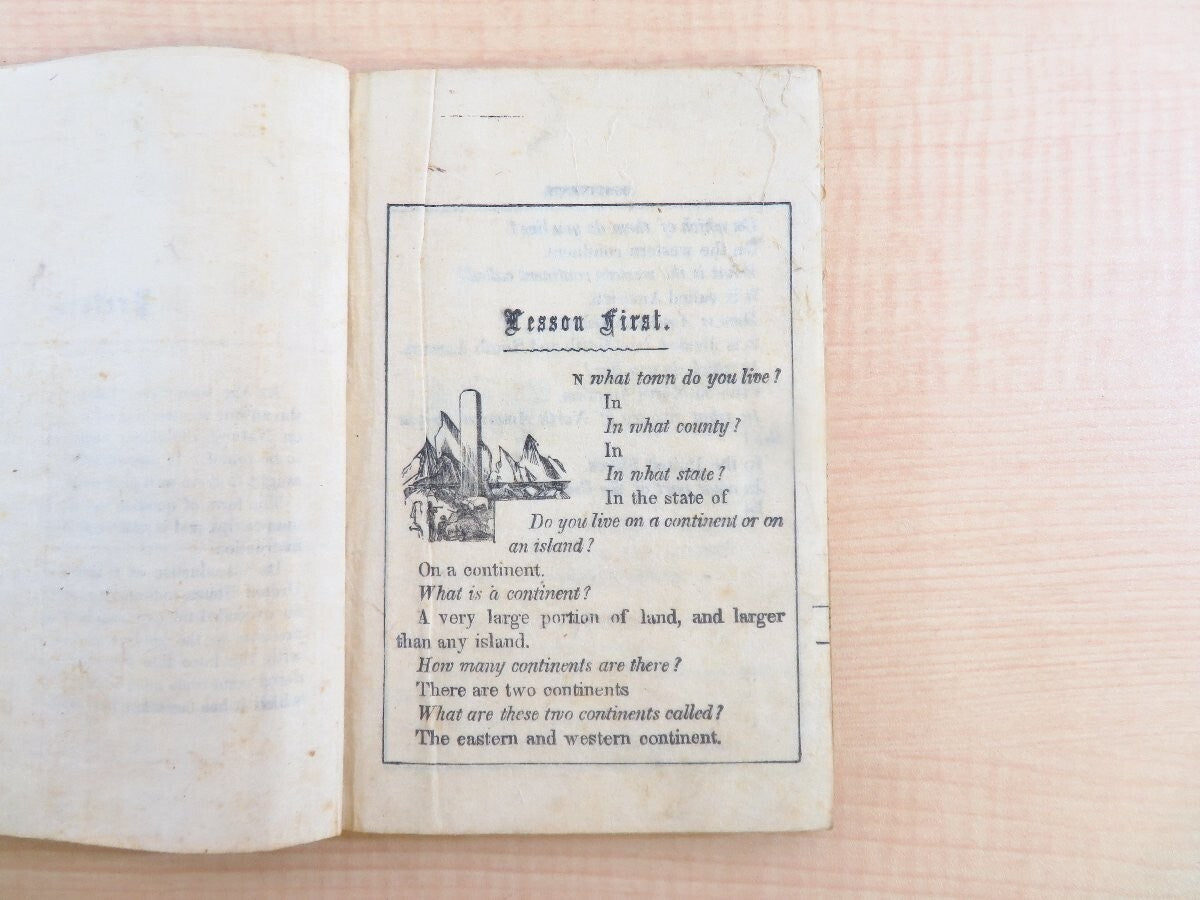 Lesson First.
N what town do you live?
In
In what county?
In
In what state?
In the state of
Do you live on a continent or on
an island?
On a continent.
What is a continent?
A very large portion of land, and larger
than any island.
How many continents are there?
There are two continents
What are these two continents called?
The eastern and western continent.